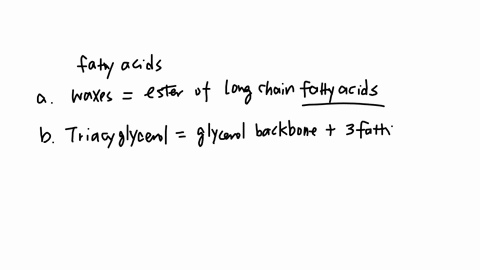 fatty acids
a. waxes = ester of long chain fatty acids
b. Triacyglycerol = glycerol backbone + 3 fatti